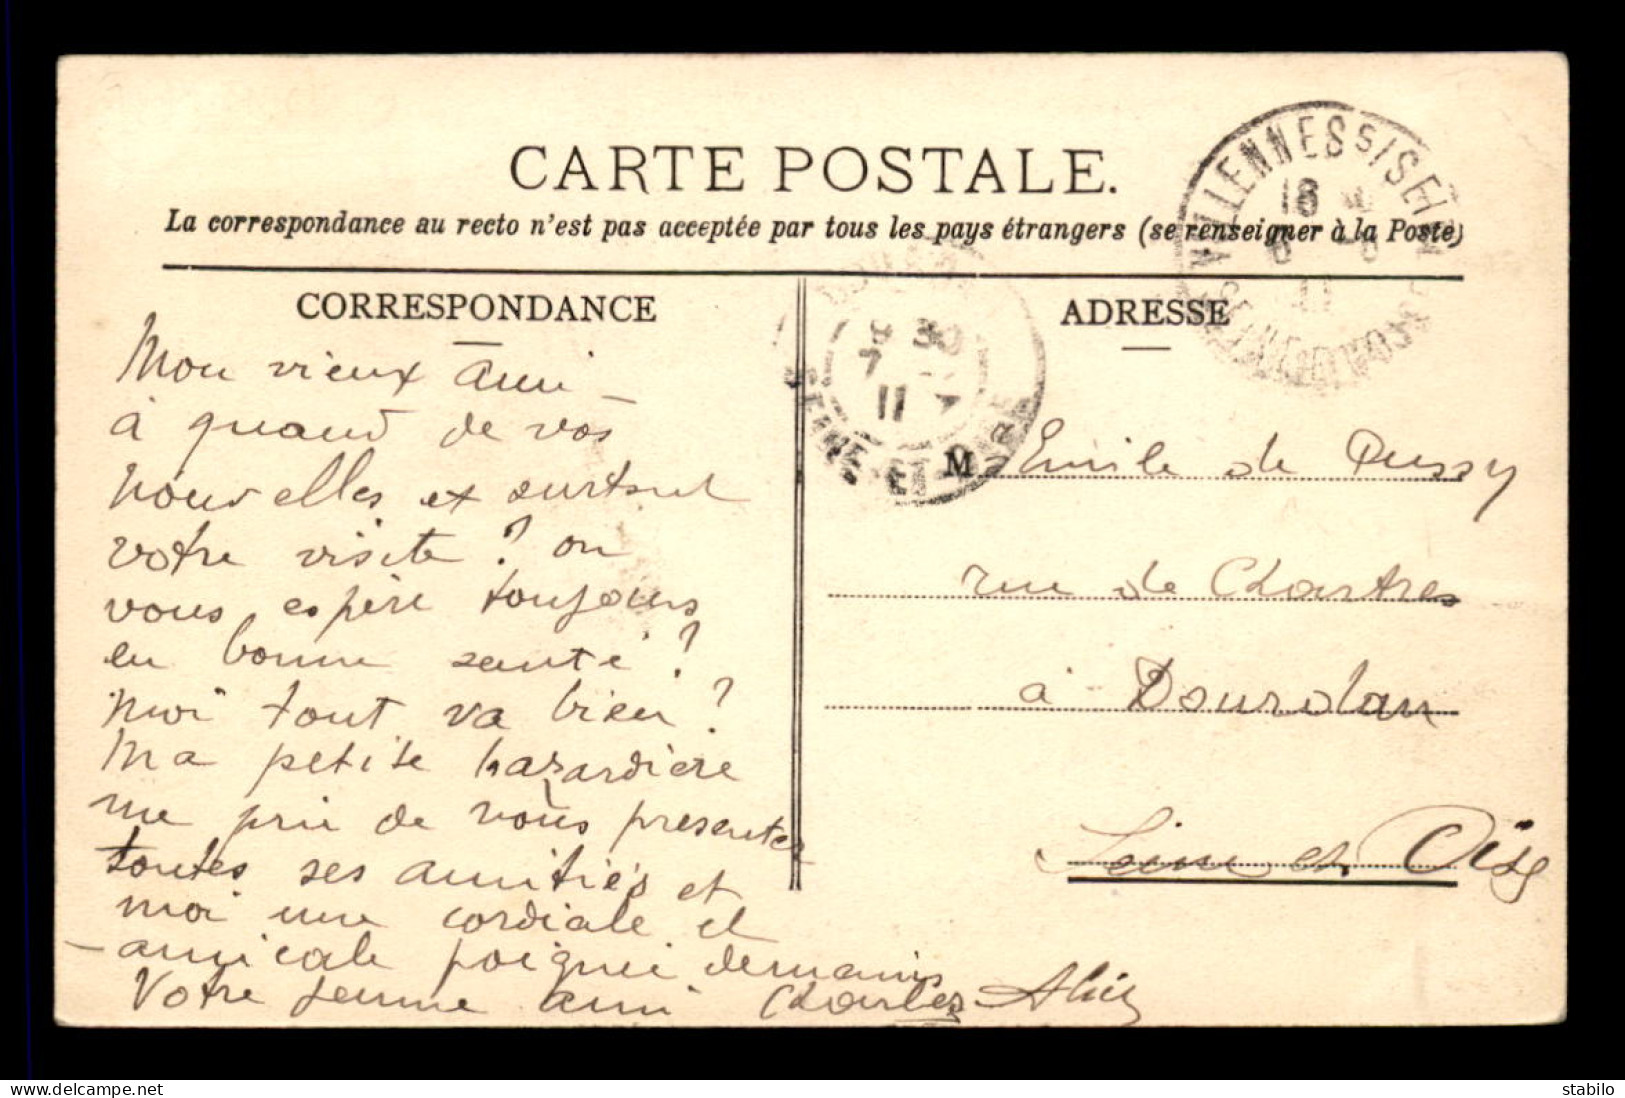 CARTE POSTALE.
La correspondance au recto n'est pas acceptée par tous les pays étrangers (se renseigner à la Poste)
CORRESPONDANCE
Mon vieux ami
à quand de vos
nouvelles et surtout
votre visite ? on
vous espère toujours
en bonne santé ?
moi tout va bien ?
Ma petite hazardière
me prie de vous présenter
toutes ses amitiés et
moi une cordiale et
amicale poignée demains
Votre jeune ami Charles
ADRESSE
M Emile de Pussy
rue de Chartres
à Dourdan
Seine et Oise
VILLENNES S/SEINE
18
11
7
11
SEINE-ET-OISE
delcampe.net
stabilo